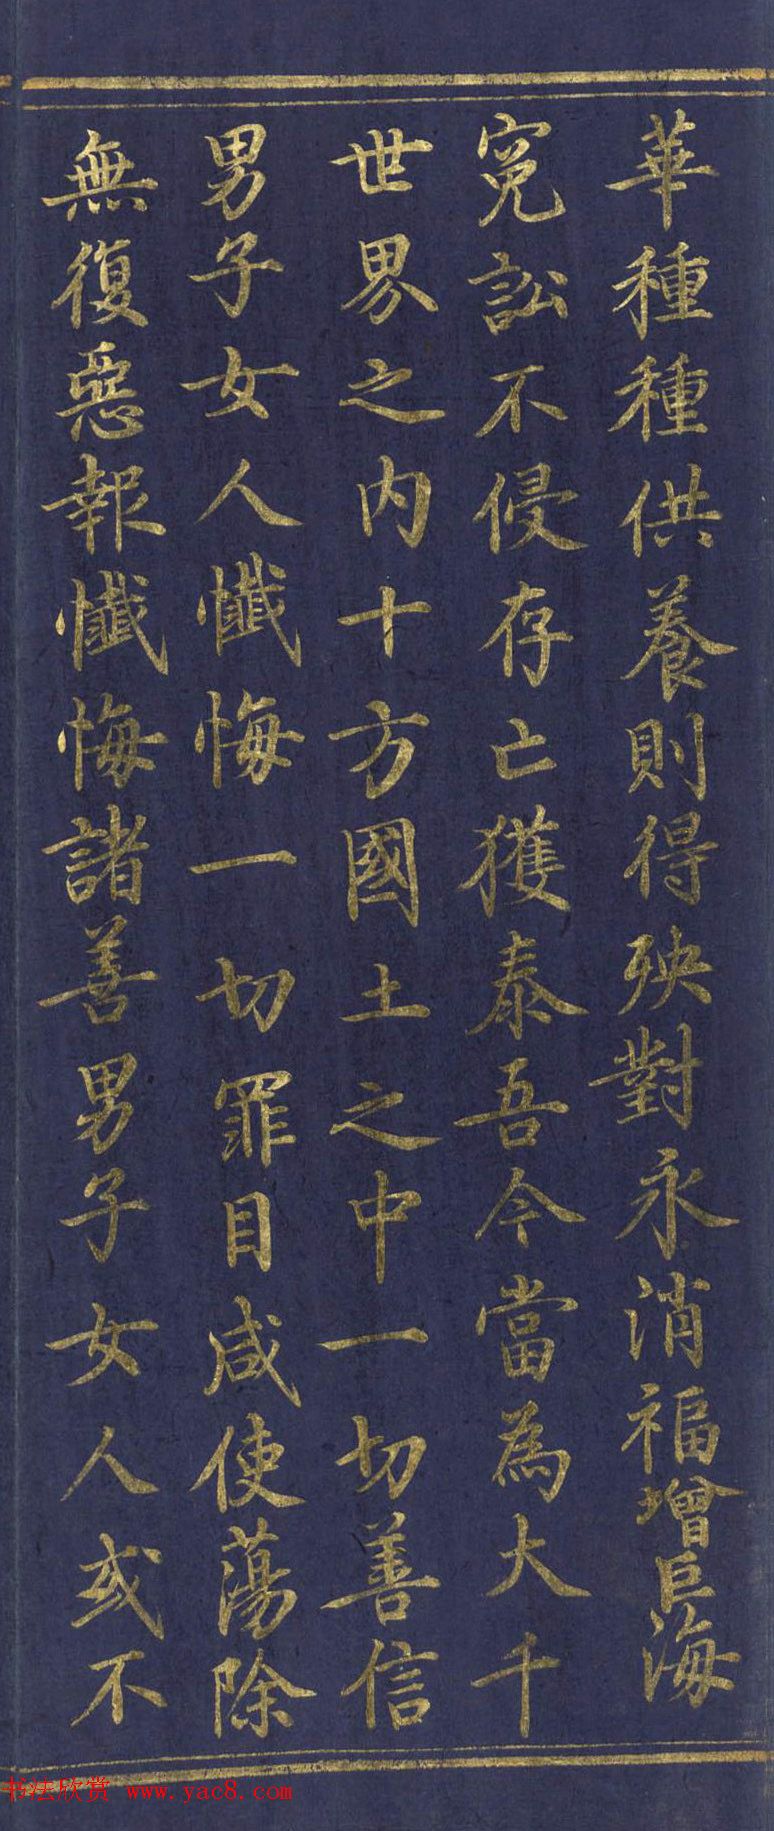 華種種供養則得殃對永消福增巨海
寃訟不侵存亡獲泰吾今當為大千
世界之内十方國土之中一切善信
男子女人懺悔一切罪目咸使蕩除
無復惡報懺悔諸善男子女人或不
书法欣赏 www.yac8.com